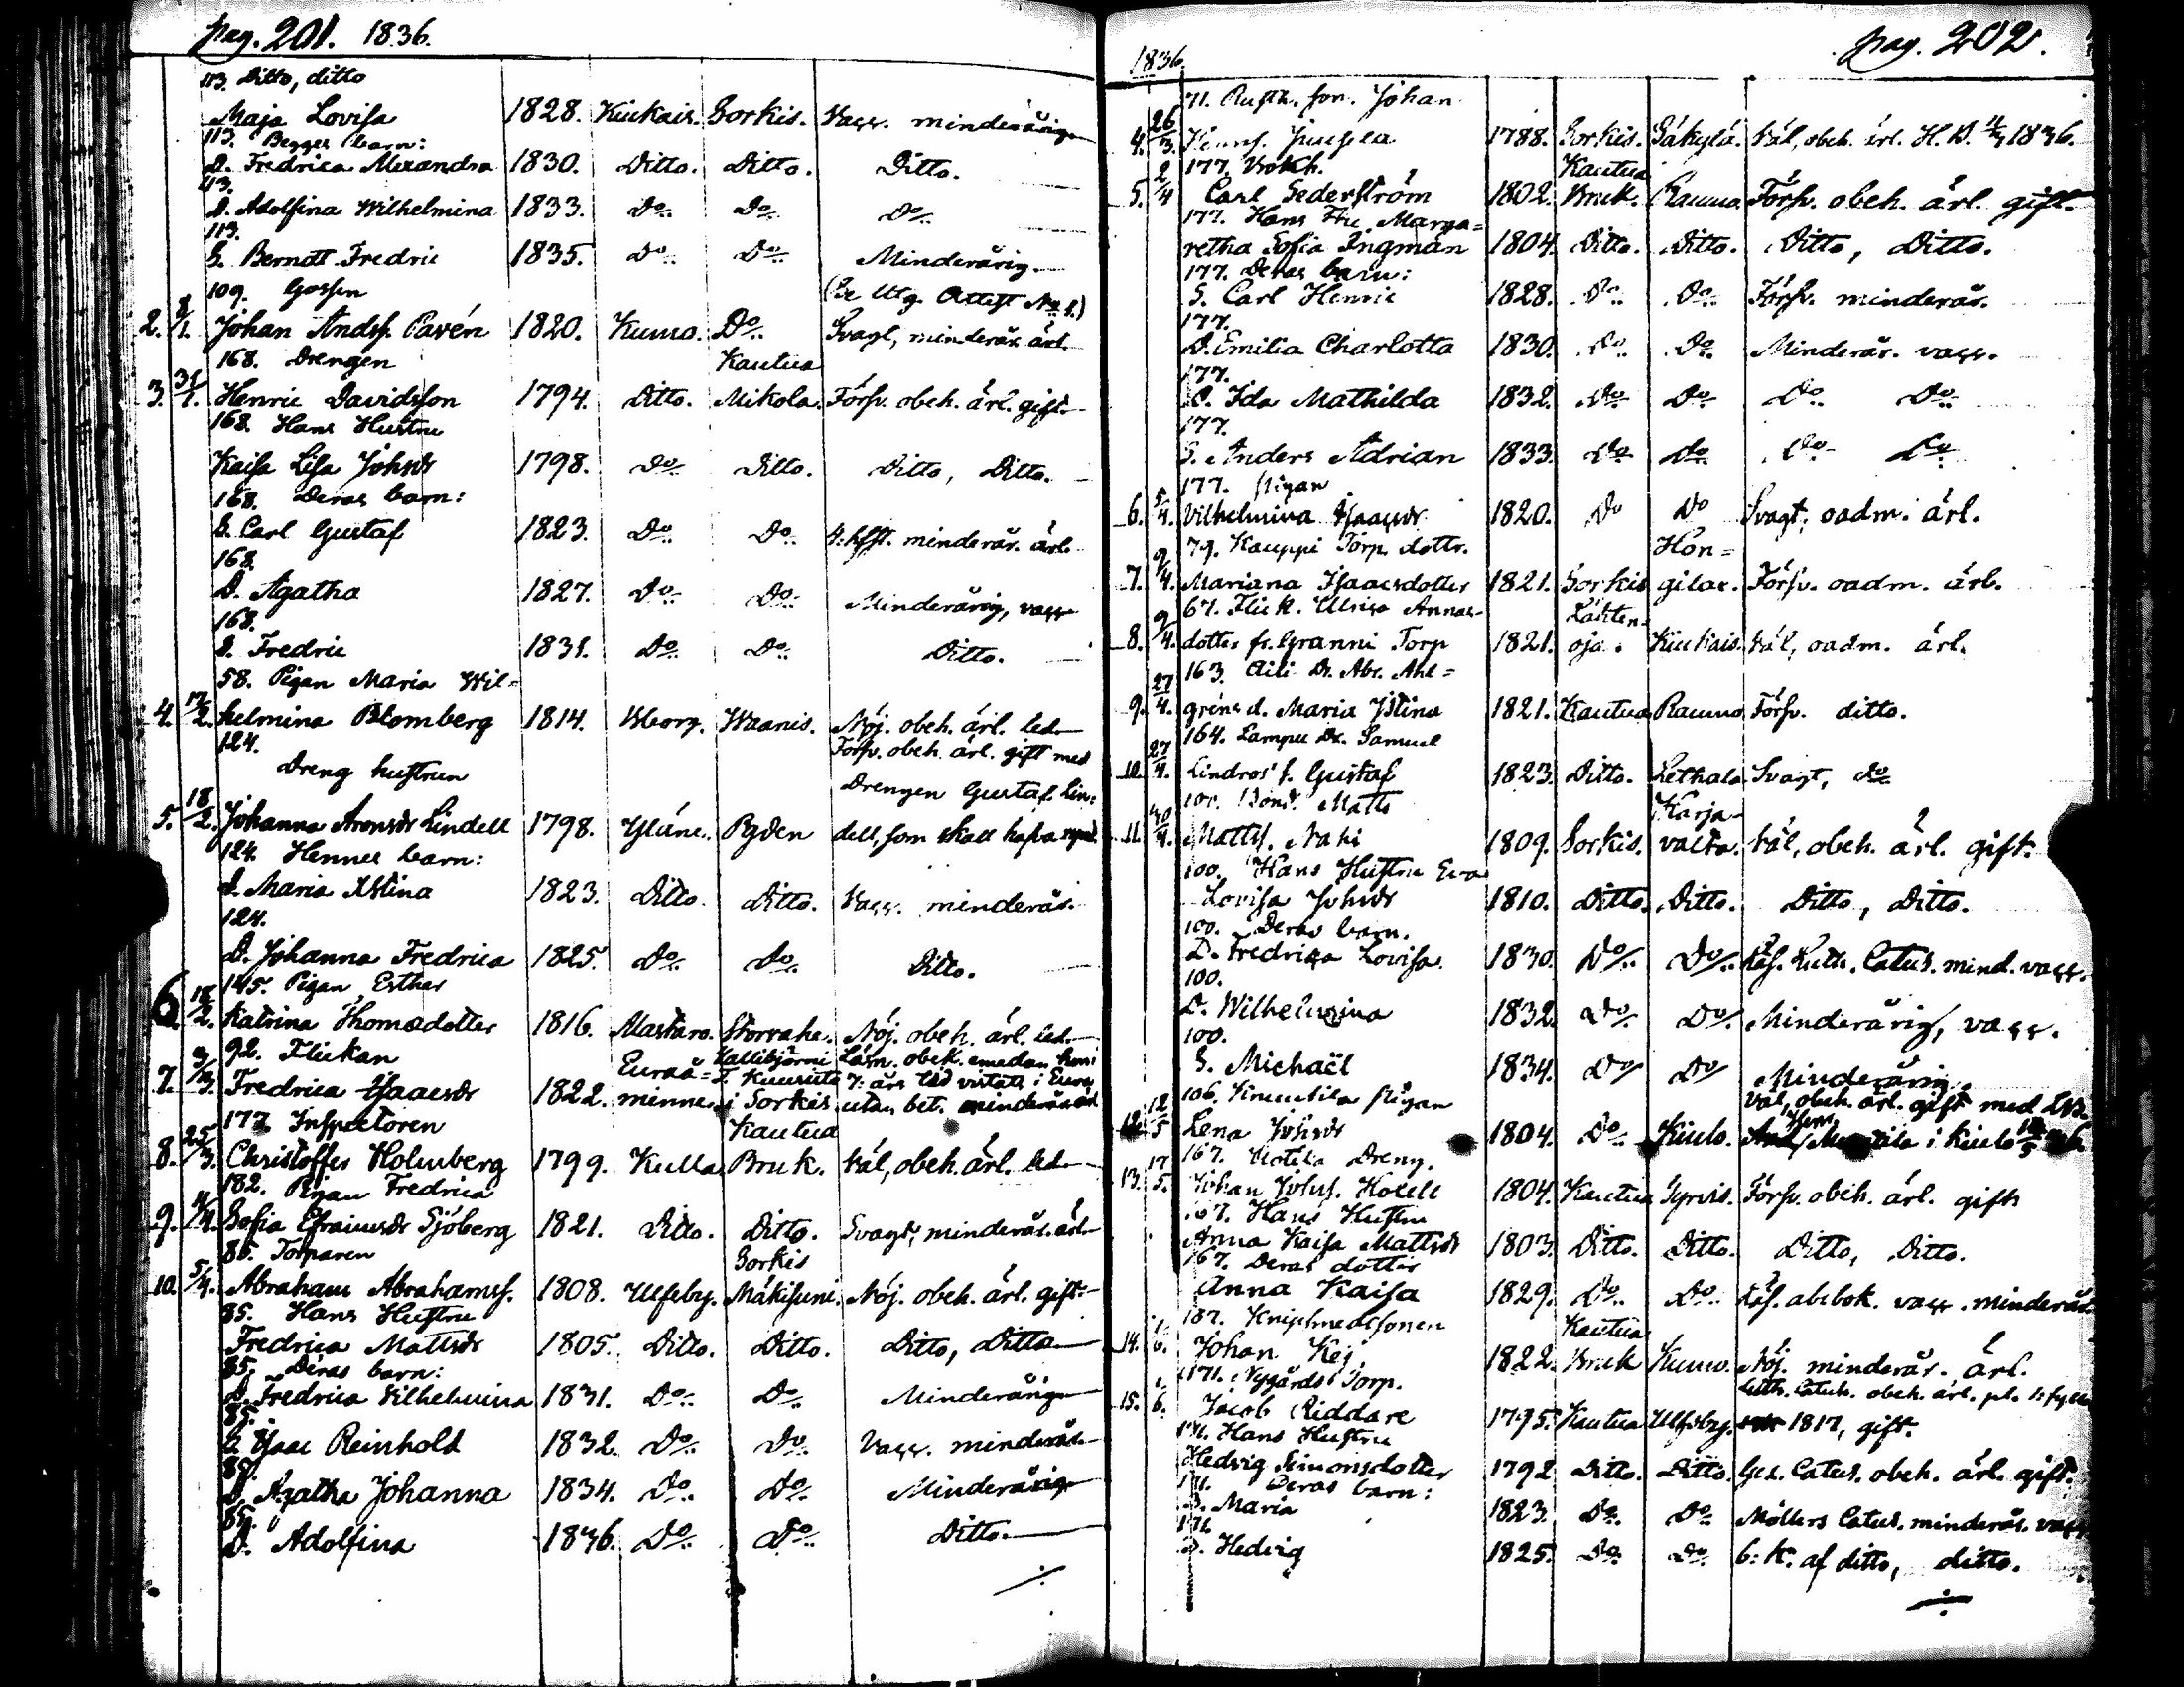 pag. 201. 1836.
113. Ditto, ditto
Maja Lovisa 1828. Kiukais. Sorkis. Vacc. minderårig
113. Begges barn:
D. Fredrica Alexandra 1830. Ditto. Ditto. Ditto.
113.
D. Adolfina Wilhelmina 1833. Do Do Do
113.
S. Berndt Fredric 1835. Do Do Minderårig.
109. Gossen (Se Utg. Attest No 1.)
2. 8/1. Johan Andsf. Pavén 1820. Kumo. Do Svagl, minderår. ärl.
168. Drengen Kautua
3. 31/1. Henric Davidsson 1794. Ditto. Mikola. Försv. obeh. ärl. gift
168. Hans Hustru
Kaisa Lisa Johsdr 1798. Do Ditto. Ditto, Ditto.
168. Deras barn:
S. Carl Gustaf 1823. Do Do 4: hfft. minderår. ärl.
168.
D. Agatha 1827. Do Do Minderårig, vacc
168.
S. Fredric 1831. Do Do Ditto.
58. Pigan Maria Wil=
4. 17/2. helmina Blomberg 1814. Wborg. Waanis. Nöj. obeh. ärl. led.
124. Försv. obeh. ärl. gift med
Dreng hustrun Drengen Gustaf Lin=
5. 18/2. Johanna Aronsdr Lindell 1798. Yläne. Pyden dell, som skall hafva
124. Hennes barn:
D. Maria Xstina 1823. Ditto. Ditto. Vacc. minderår.
124.
D. Johanna Fredrica 1825. Do Do Ditto.
145. Pigan Esther
6. 18/2. Katrina Thomædotter 1816. Alastaro. Storraha. Nöj. obeh. ärl. led.
92. Flickan Euraå= Kallibjörni Läsn. obek. emedan hon i
7. 9/3. Fredrica Isaacsdr 1822. minne. i Sorkis utan bet. minderår
177. Inspectoren Kautua
8. 25/3. Christoffer Holmberg 1799. Kulla Bruk. Väl, obeh. ärl. led
182. Pigan Fredrica
9. 4/4. Sofia Efraimsdr Sjöberg 1821. Ditto. Ditto. Svagt, minderår. ärl.
85. Torparen Sorkis
10. 5/4. Abraham Abrahamsf. 1808. Ulfsby. Mäkisuni. Nöj. obeh. ärl. gift.
85. Hans Hustru
Fredrica Mattsdr 1805. Ditto. Ditto. Ditto, Ditto
85. Deras barn:
D. Fredrica Vilhelmina 1831. Do Do Minderårig
85.
S. Isaac Reinhold 1832. Do Do Vacc. minderår.
85.
D. Agatha Johanna 1834. Do Do Minderårig
85.
D. Adolfina 1836. Do Do Ditto.
1836. pag. 202.
71. Rusth. son. Johan
4. 26/3. 1788. Sorkis. Säkylä. Väl, obeh. ärl. H. D. 1836.
177. Kautua
5. 2/4 Carl Sederström 1802. Bruk. Raumo. Försv. obeh. ärl. gift.
177. Hans Hu. Marga=
retha Sofia Ingman 1804. Ditto. Ditto. Ditto, Ditto.
177. Deras barn:
S. Carl Henric 1828. Do Do Försv. minderår.
177.
D. Emilia Charlotta 1830. Do Do Minderår. vacc.
177.
D. Ida Mathilda 1832. Do Do Do Do
177.
S. Anders Adrian 1833. Do Do Do Do
177. Pigan
6. 5/4. Vilhelmina Isaacsdr 1820. Do Do Svagt, oadm. ärl.
79. Kauppi Torp. dottr. Hon=
7. 9/4. Mariana Isaacsdotter 1821. Sorkis gilax. Försv. oadm. ärl.
67. Flick. Ulrica Annas- Lähten-
8. 9/4. dotter fr. Granni Torp 1821. oja. Kiukais. Väl, oadm. ärl.
163. Aili Dr. Abr. Ahl=
9. 27/4. gréns d. Maria Xstina 1821. Kautua Raumo Försv. ditto.
164. Lampu Dr. Samuel
10. 27/4. Lindros' s. Gustaf 1823. Ditto. Lethala Svagt, do
100. Bond. Matts Karja-
11. 30/4. Mattsf. Naki 1809. Sorkis. valta. Väl, obeh. ärl. gift.
100. Hans Hustru Eva
Lovisa Johsdr 1810. Ditto. Ditto. Ditto, Ditto.
100. Deras barn.
D. Fredrica Lovisa. 1830. Do Do Läs. Luth. Catech. mind. vacc.
100.
D. Wilhelmina 1832. Do Do Minderårig, vacc.
100.
S. Michaël 1834. Do Do Minderårig.
106. Kinnutila Pigan Väl, obeh. ärl. gift med
12. 12/5 Lena Johsdr 1804. Do Kiulo. i Kiulo
167. Uotila Dreng.
13. 17/5. Johan Johsf. Holell 1804. Kautua Tyrvis. Försv. obeh. ärl. gift
167. Hans Hustru
Anna Kaisa Mattsdr 1803. Ditto. Ditto. Ditto, Ditto.
167. Deras dotter
Anna Kaisa 1829. Do Do Läs. abcbok. vacc. minderår.
187. Knipsmedssonen Kautua
14. 1/6. Johan Kej. 1822. Bruk Kumo. Nöj. minderår. ärl.
171. Nygårds Torp. Luth. Catech. obeh. ärl.
15. 1/6. Jacob Riddare 1795. Kautua Ulfsby. 1817, gift.
171. Hans Hustru
Hedvig Simonsdotter 1792 Ditto. Ditto. Gez. Catech. obeh. ärl. gift.
171. Deras barn:
D. Maria 1823. Do Do Möllers Catech. minderår. vacc.
171.
D. Hedvig 1825. Do Do 6: K. af ditto, ditto.